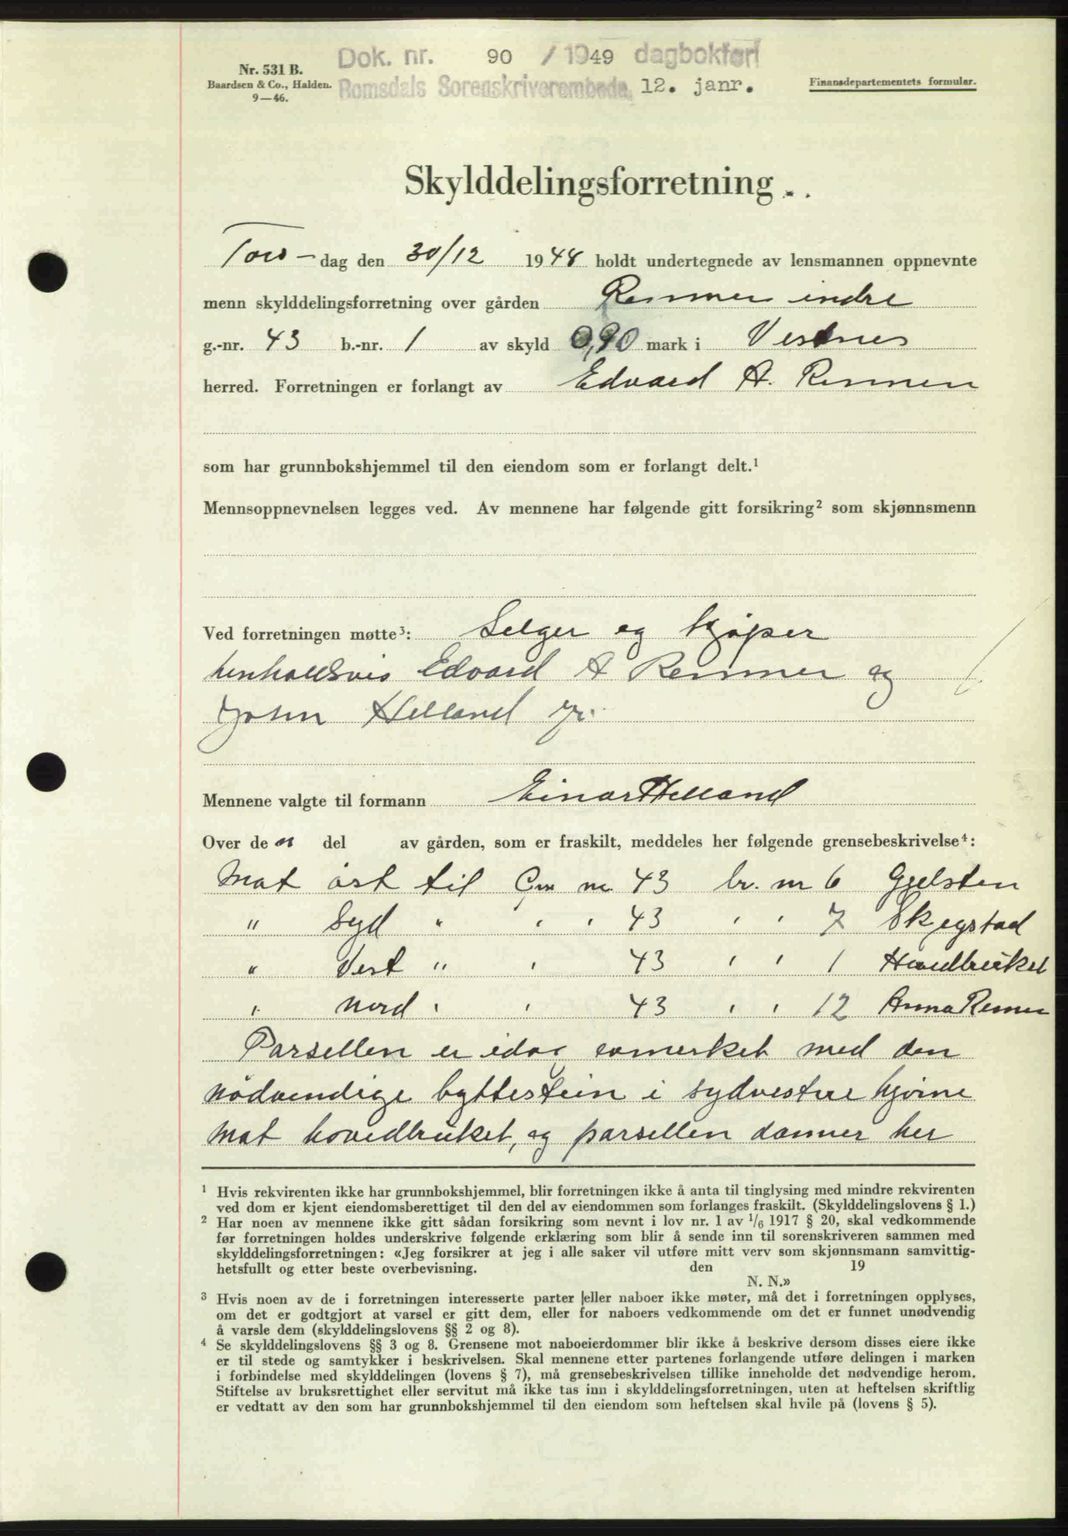 Nr. 531 B.
Baardsen & Co., Halden.
9—46.
Dok. nr. 90 / 1949 dagbokført
Romsdals Sorenskriverembede, 12. janr.
Finansdepartementets formular.
Skylddelingsforretning
Tors-dag den 30/12 1948 holdt undertegnede av lensmannen oppnevnte
menn skylddelingsforretning over gården Remmen indre
g.-nr. 43 b.-nr. 1 av skyld 0,90 mark i Vestnes
herred. Forretningen er forlangt av Edvard A. Remmen
som har grunnbokshjemmel til den eiendom som er forlangt delt.¹
Mennsoppnevnelsen legges ved. Av mennene har følgende gitt forsikring² som skjønnsmenn
Ved forretningen møtte³: Selger og kjøper
henholdsvis Edvard A Remmen og
John Helland jr.
Mennene valgte til formann Einar Helland
Over den del av gården, som er fraskilt, meddeles her følgende grensebeskrivelse⁴:
Mot øst til Gr. nr. 43 br. nr 6 Gjelsten
" Syd " " " 43 " " 7 Skegstad
" Vest " " 43 " " 1 Hovedbruket
" Nord " " 43 " " 12 Anna Remen
Parsellen er idag avmerket med den
nødvendige byttestein i sydvestre hjørne
mot hovedbruket, og parsellen danner her
¹ Hvis rekvirenten ikke har grunnbokshjemmel, blir forretningen ikke å anta til tinglysing med mindre rekvirenten
ved dom er kjent eiendomsberettiget til den del av eiendommen som forlanges fraskilt. (Skylddelingslovens § 1.)
² Har noen av mennene ikke gitt sådan forsikring som nevnt i lov nr. 1 av 1/6 1917 § 20, skal vedkommende
før forretningen holdes underskrive følgende erklæring som blir å sende inn til sorenskriveren sammen med
skylddelingsforretningen: «Jeg forsikrer at jeg i alle saker vil utføre mitt verv som skjønnsmann samvittig-
hetsfullt og etter beste overbevisning. den 19
N. N.»
³ Hvis noen av de i forretningen interesserte parter eller naboer ikke møter, må det i forretningen opplyses,
om det er godtgjort at varsel er gitt dem, eller for naboers vedkommende om det er funnet unødvendig
å varsle dem (skylddelingslovens §§ 2 og 8).
⁴ Se skylddelingslovens §§ 3 og 8. Grensene mot naboeierdommer blir ikke å beskrive dersom disses eiere ikke
er til stede og samtykker i beskrivelsen. Skal mennene etter partenes forlangende utføre delingen i marken
i forbindelse med skylddelingen (lovens § 7), må grensebeskrivelsen tillike inneholde det nødvendige herom.
Stiftelse av bruksrettighet eller servitut må ikke tas inn i skylddelingsforretningen, uten at heftelsen skriftlig
er vedtatt av den som har grunnbokshjemmel til den eiendom som heftelsen skal hvile på (lovens § 5).